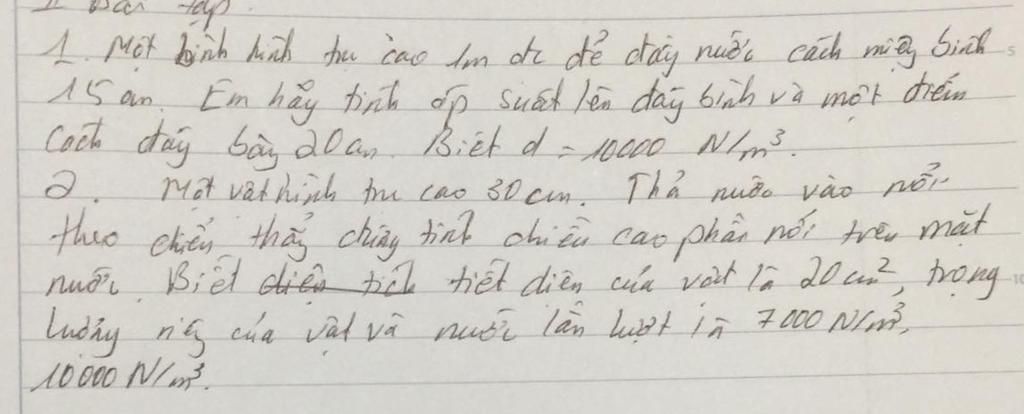 II Bài tập
1. Một bình hình trụ cao 1m đc để đầy nước cách miệng bình
15 cm. Em hãy tính áp suất lên đáy bình và một điểm
cách đáy bằng 20cm. Biết d = 10000 N/m³.
2. Một vật hình trụ cao 30 cm. Thả nước vào nổi
theo chiều thẳng chứng tính chiều cao phần nổi trên mặt
nước. Biết diện tích tiết diện của vật là 20 cm², trọng
lượng riêng của vật và nước lần lượt là 7000 N/m³,
10000 N/m³.